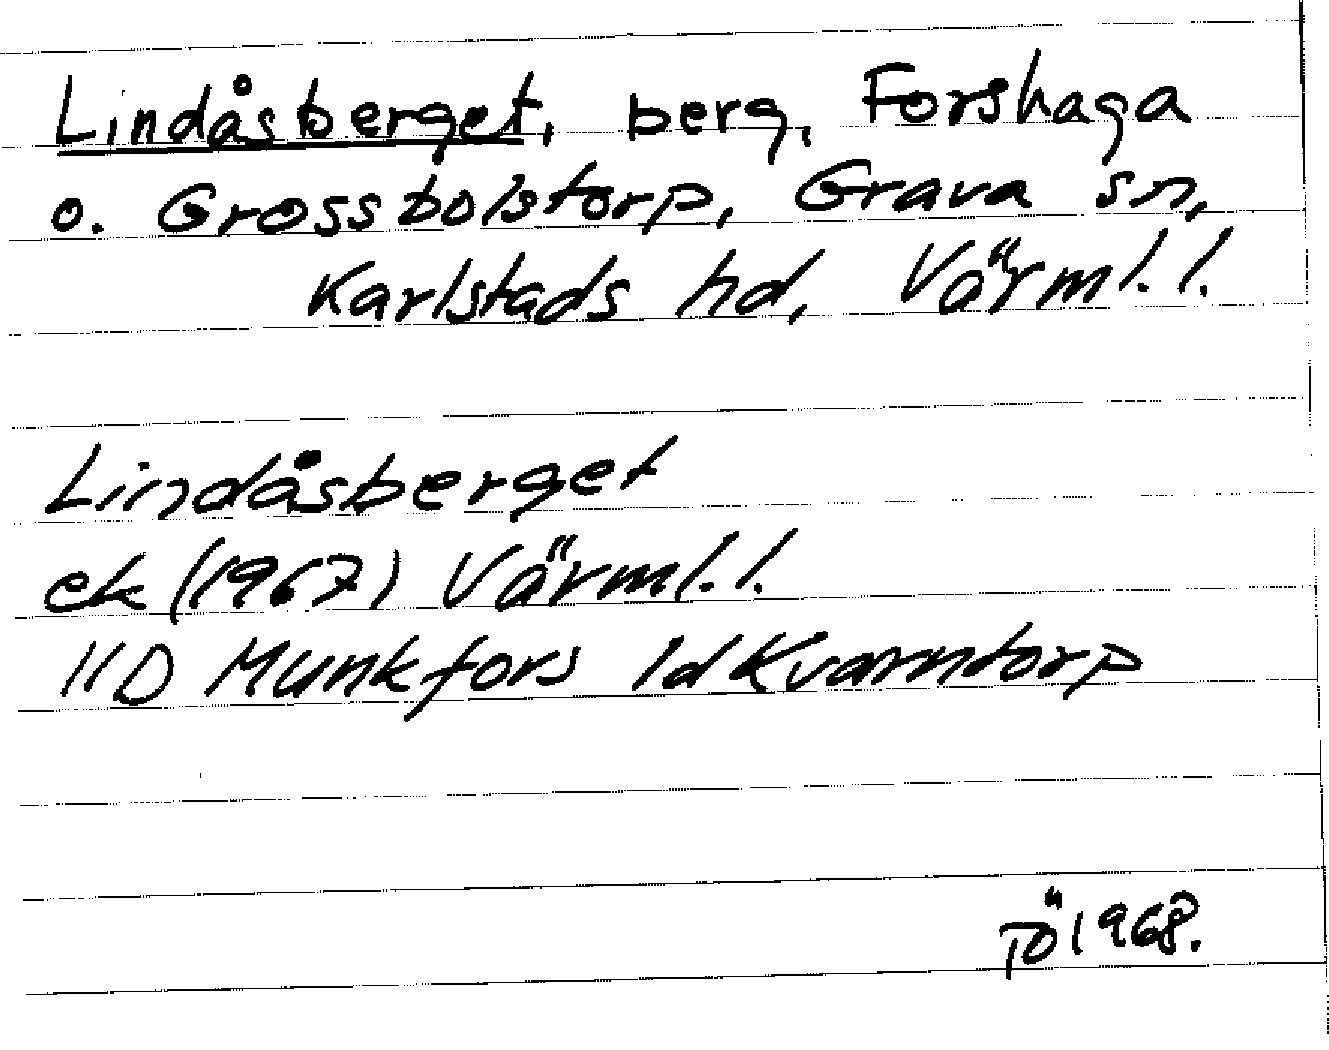 Lindåsberget, berg, Forshaga
o. Grossbolstorp, Grava sn,
Karlstads hd, Värml. l.
Lindåsberget
ek (1967) Värml. l.
11D Munkfors 1d Kvarntorp
PÖ 1968.